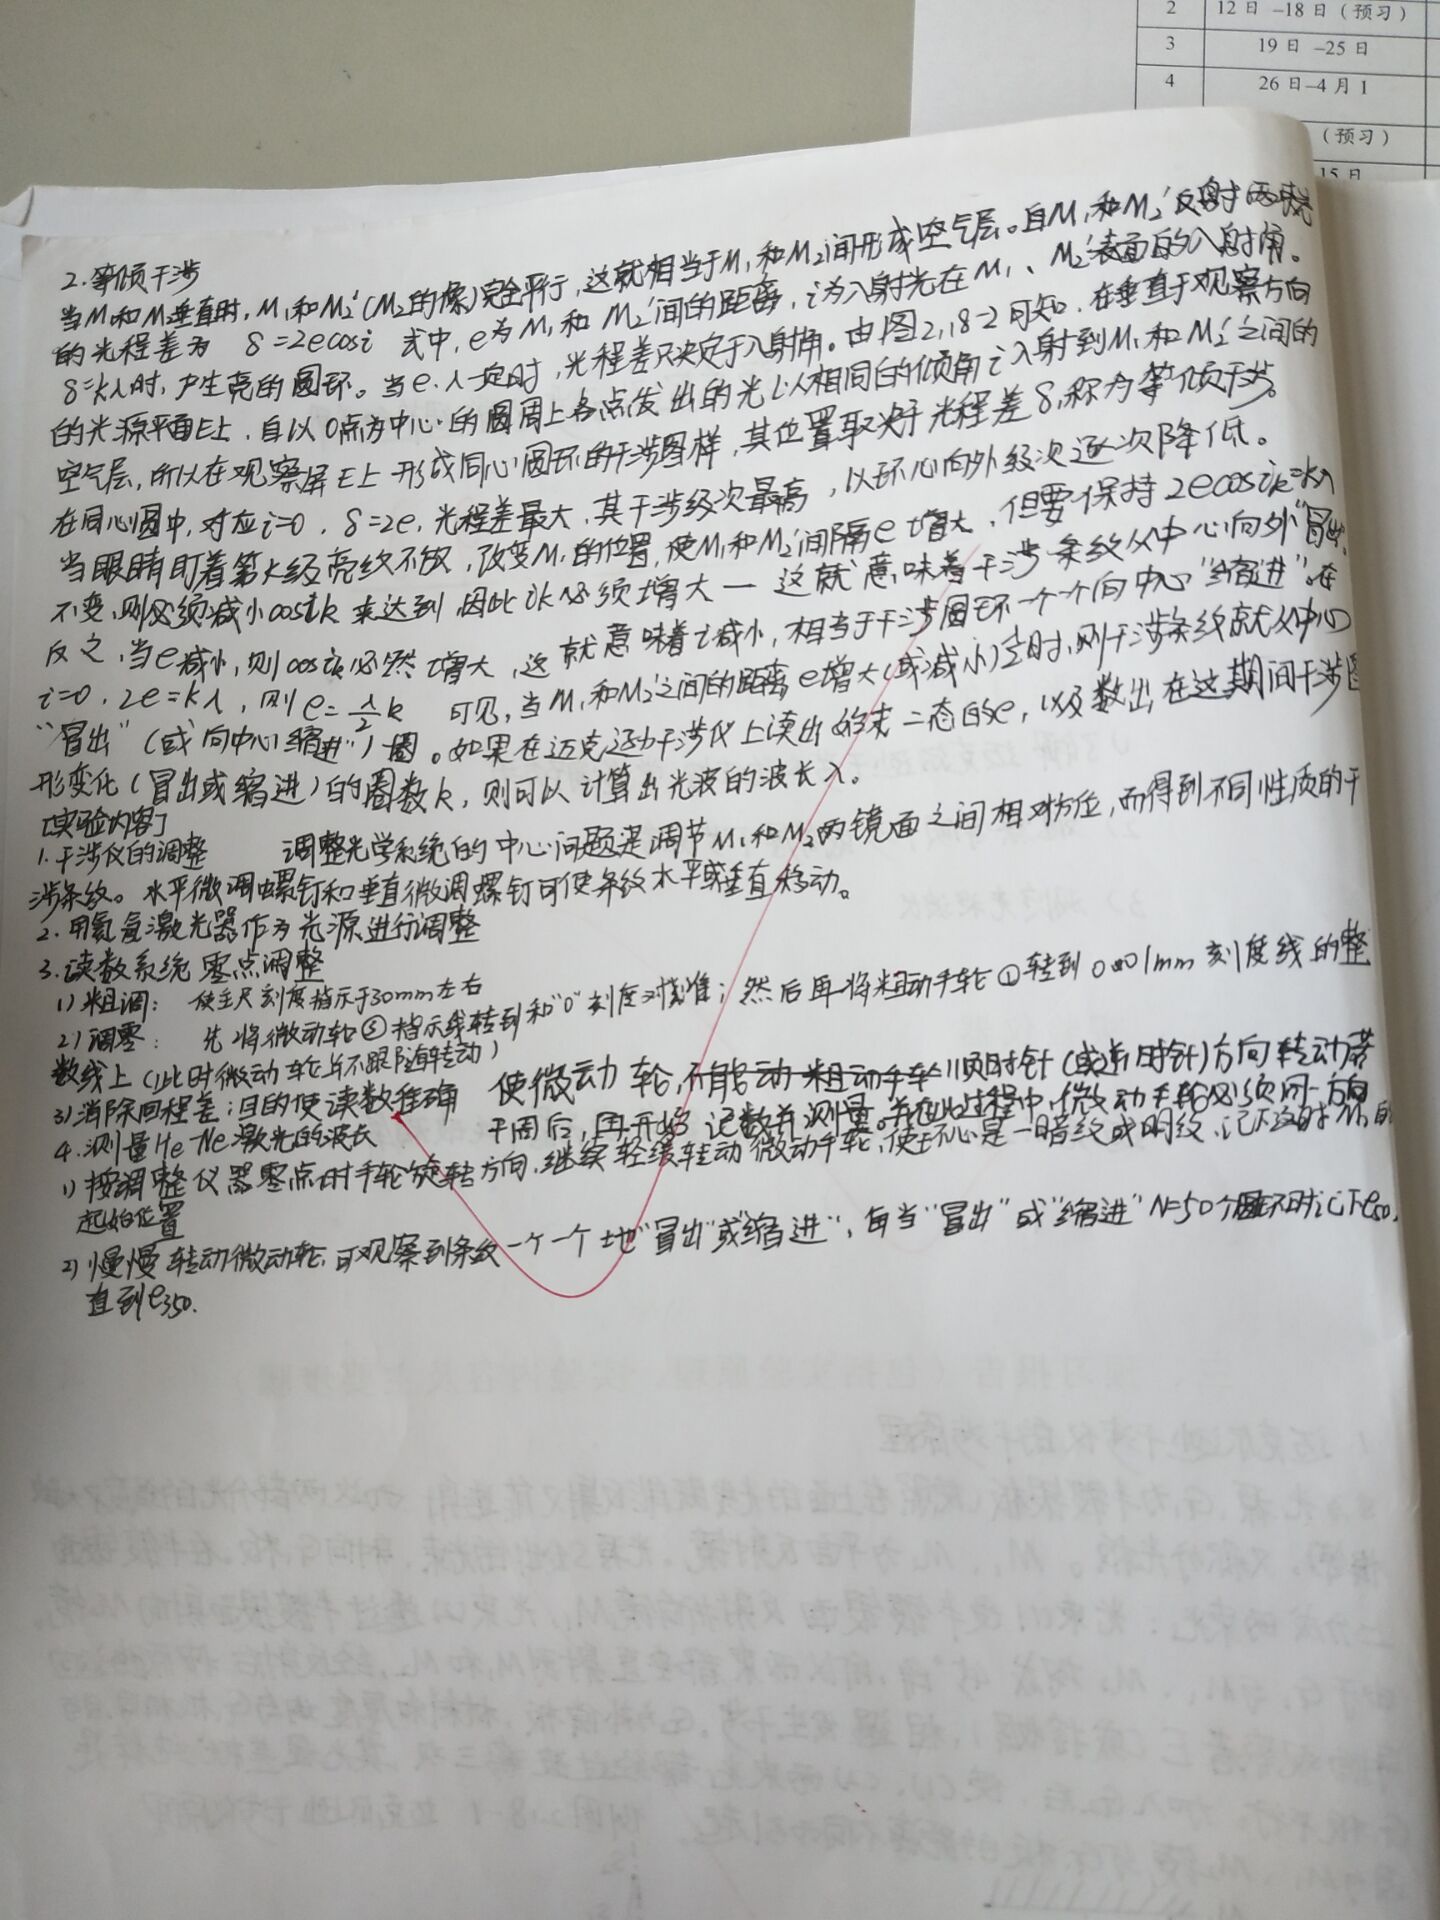 2 12日 –18日（预习）
3 19日 –25日
4 26日–4月1
（预习）
15日
2.等倾干涉
当M₁和M₂垂直时,M₁和M₂′(M₂的像)完全平行,这就相当于M₁和M₂′间形成空气层。自M₁和M₂′反射两束光
的光程差为 δ=2ecosi 式中,e为M₁和M₂′间的距离,i为入射光在M₁、M₂′表面的入射角。
δ=kλ时,产生亮的圆环。当e.λ一定时,光程差只决定于入射角。由图2.18-2可知.在垂直于观察方向
的光源平面E上,自以O点为中心的圆周上各点发出的光以相同的倾角i入射到M₁和M₂′之间的
空气层,所以在观察屏E上形成同心圆环的干涉图样,其位置取决于光程差δ,称为等倾干涉。
在同心圆中,对应i=0,δ=2e,光程差最大,其干涉级次最高,以环心向外级次逐次降低。
当眼睛盯着第k级亮纹不放,改变M₁的位置,使M₁和M₂′间隔e增大,但要保持2ecosik=kλ
不变,则必须减小cosik来达到,因此ik必须增大—这就意味着干涉条纹从中心向外"冒出".
反之,当e减小,则cosik必然增大,这就意味着i减小,相当于干涉圆环一个一个向中心"缩进".在
i=0,2e=kλ,则e=λ/2 k 可见,当M₁和M₂′之间的距离e增大(或减小)λ/2时,则干涉条纹就从中心
"冒出"(或向中心缩进")一圈。如果在迈克逊干涉仪上读出始末二态的e,以及数出在这期间干涉图
形变化(冒出或缩进)的圈数k,则可以计算出光波的波长λ。
[实验内容]
1.干涉仪的调整 调整光学系统的中心问题是调节M₁和M₂两镜面之间相对方位,而得到不同性质的干
涉条纹。水平微调螺钉和垂直微调螺钉可使条纹水平或垂直移动。
2.用氦氖激光器作为光源进行调整
3.读数系统零点调整
1)粗调: 使主尺刻度指示于30mm左右
2)调零: 先将微动轮⑤指示线转到和"0"刻度对准;然后再将粗动手轮①转到0.01mm刻度线的整
数线上(此时微动轮并不跟随转动)
3)消除回程差:目的使读数准确 使微动轮,不能动粗动手轮顺时针(或逆时针)方向转动若
干周后,再开始记数并测量。并在此过程中,微动手轮必须同一方向
4.测量He Ne激光的波长
1)按调整仪器零点时手轮旋转方向,继续轻缓转动微动手轮,使环心是一暗纹或明纹,记下这时M₁的
起始位置
2)慢慢转动微动轮,可观察到条纹一个一个地"冒出"或"缩进",每当"冒出"或"缩进"N=50个圆环时记下e₅₀,
直到e₃₅₀.